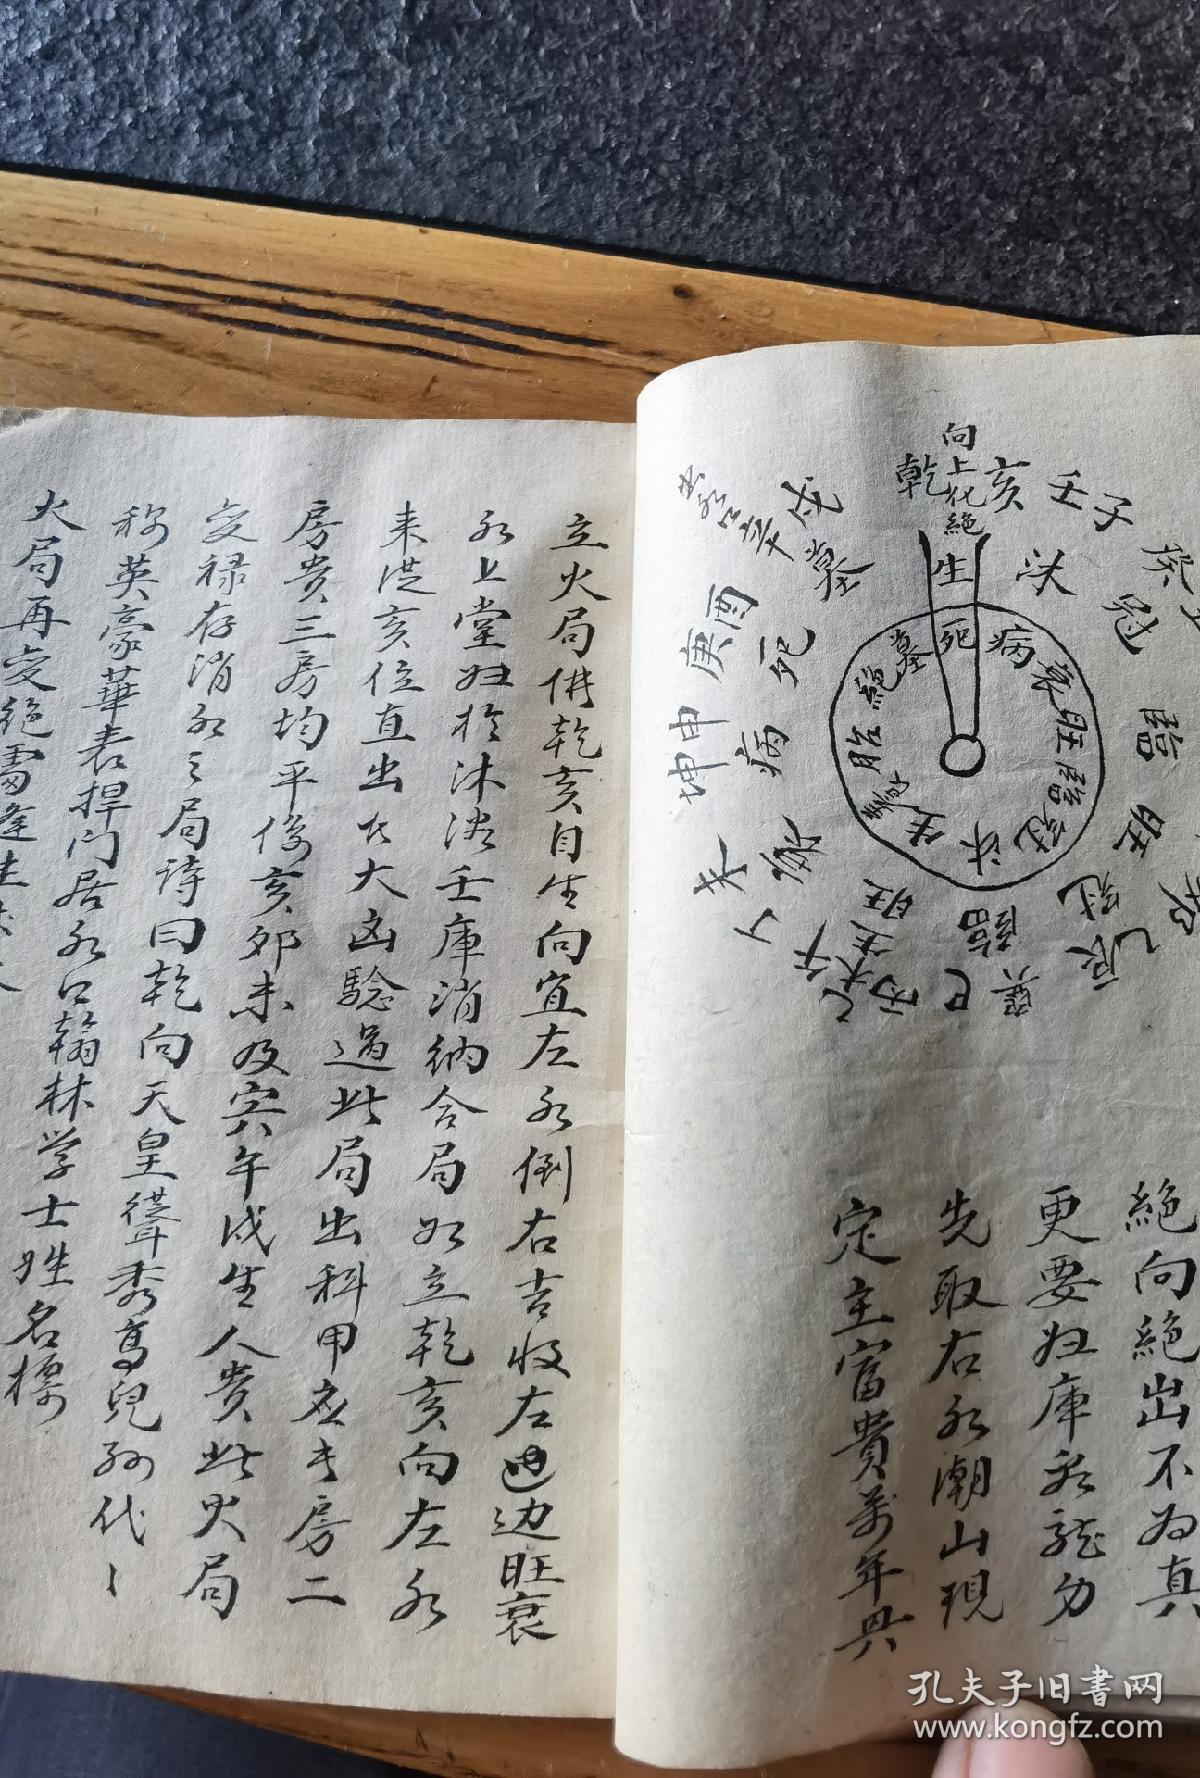 向上化絕
乾
亥
壬子
癸
戌
酉
庚
申
坤
未
丁
午
丙
巳
巽
辰
乙
生
沐
冠
臨
旺
衰
病
死
墓
死
病
衰
旺
臨
冠
沐
生
養
胎
絕
墓
絕向絕出不為真
更要归庫
先取右水潮山現
定主富貴萬年興
立火局
乾亥自生向宜左水倒右吉收左
边旺衰
水上堂归於沐浴壬庫消納合局如立乾亥向左水
来
亥位直出
大凶驗過此局出科甲
房二
房貴三房均平
亥夘未及寅午戌生人貴此火局
禄存消水之局詩曰乾向天皇
秀高兒孙代〻
称英豪華表捍门居水口翰林学士姓名標
火局再
絕
逢生
孔夫子旧书网
www.kongfz.com